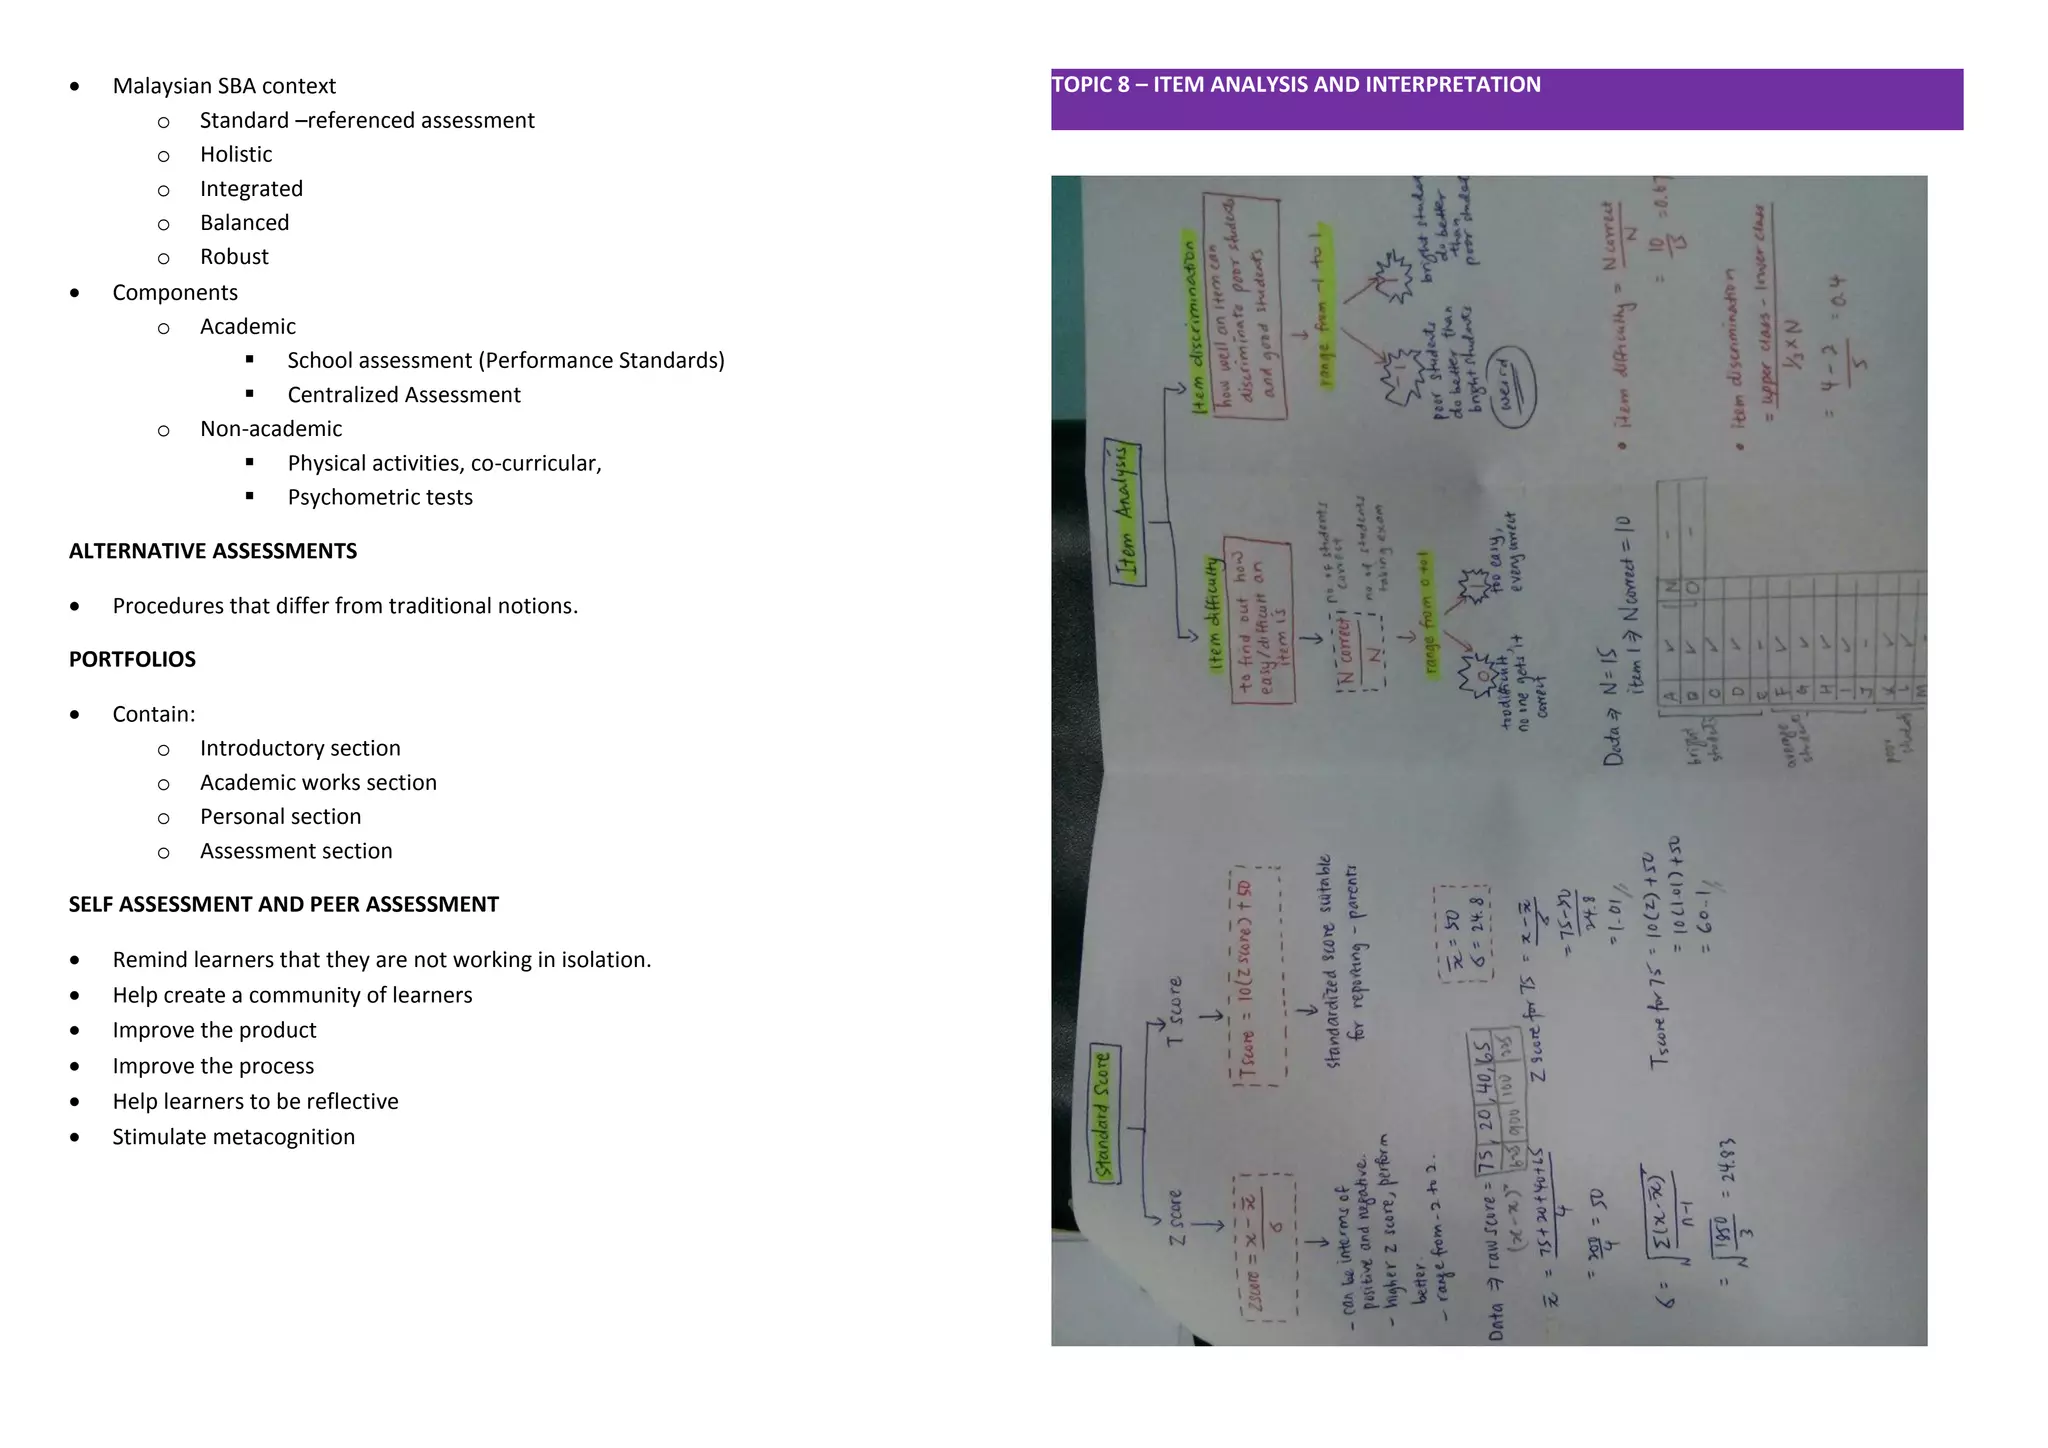 • Malaysian SBA context
o Standard –referenced assessment
o Holistic
o Integrated
o Balanced
o Robust
• Components
o Academic
▪ School assessment (Performance Standards)
▪ Centralized Assessment
o Non-academic
▪ Physical activities, co-curricular,
▪ Psychometric tests
ALTERNATIVE ASSESSMENTS
• Procedures that differ from traditional notions.
PORTFOLIOS
• Contain:
o Introductory section
o Academic works section
o Personal section
o Assessment section
SELF ASSESSMENT AND PEER ASSESSMENT
• Remind learners that they are not working in isolation.
• Help create a community of learners
• Improve the product
• Improve the process
• Help learners to be reflective
• Stimulate metacognition
TOPIC 8 – ITEM ANALYSIS AND INTERPRETATION
Standard Score
Z score
Z score = x - x̄ / σ
- can be interms of
positive and negative.
- higher z score, perform
better.
- range from -2 to 2.
T score
T score = 10(Z score) + 50
standardized score suitable
for reporting - parents
Data ⇒ raw score = 75, 20, 40, 65
(x - x)² 625 900 100 225
x̄ = 75+20+40+65 / 4
= 200 / 4 = 50
σ = √ Σ(x-x̄)² / n-1
= √ 1850 / 3 = 24.83
x̄ = 50
σ = 24.8
Z score for 75 = x - x̄ / σ
= 75-50 / 24.8
= 1.01
T score for 75 = 10(Z) + 50
= 10(1.01) + 50
= 60.1
Item Analysis
Item difficulty
to find out how
easy/difficult an
item is
N correct / N
no of students
correct
no of students
taking exam
range from 0 to 1
0
too difficult,
no one gets it
correct
1
too easy,
every correct
Item discrimination
how well an item can
discriminate poor students
and good students
range from -1 to 1
-1
poor students
do better than
bright students
weird
1
bright
do better
than
poor
Data ⇒ N = 15
item 1 ⇒ N correct = 10
A ✓ N -
B ✓ O -
C ✓
D ✓
E -
F ✓
G ✓
H ✓
I ✓
J -
K ✓
L ✓
M -
bright
students
average
students
poor
• item difficulty = N correct / N
= 10 / 15 = 0.67
• item discrimination
= upper class - lower class / 1/3 x N
= 4 - 2 / 5 = 0.4